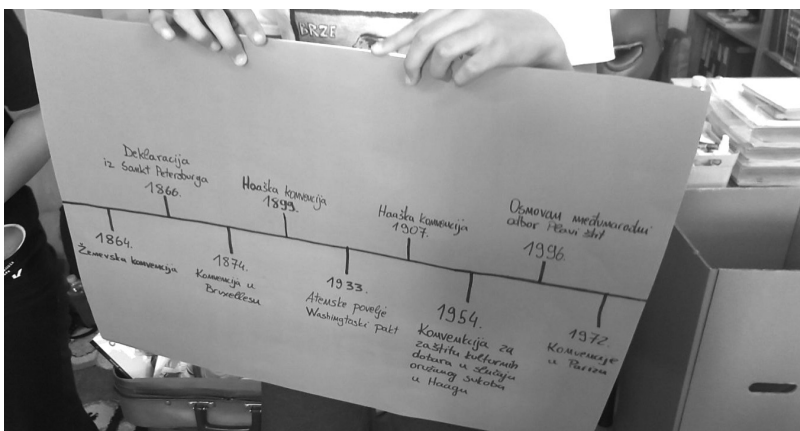 BRZE
Deklaracija
iz Sankt Petersburga
1866.
Haaška konvencija
1899.
Haaška konvencija
1907.
Osnovan međunarodni
odbor Plavi štit
1996.
1864.
Ženevska konvencija
1874.
Konvencija u
Bruxellesu
1933.
Atenske povelje
Washingtoski pakt
1954.
Konvenkcija za
zaštitu kulturnih
dobara u slučaju
oružanog sukoba
u Haagu
1972.
Konvencije
u Parizu